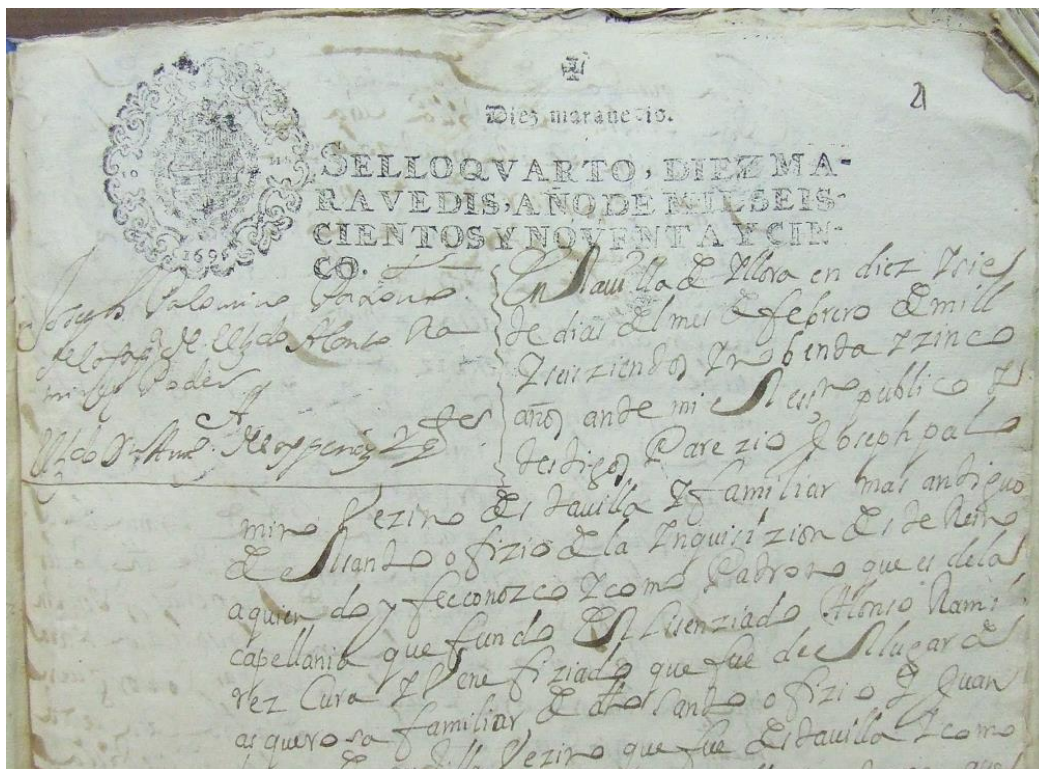 21
Diez maravedis.
SELLO QVARTO, DIEZ MA-
RAVEDIS, AÑO DE MIL SEIS-
CIENTOS Y NOVENTA Y CIN-
CO.
1695
Joseph Palomino Patrono
Alonso Ra
mirez Poder
En la uilla de Yllora en diez y sie
te dias del mes de febrero de mill
y seiszientos y nobenta y zinco
años ante mi el essno publico y
testigos Parezio Joseph palo
mino vezino desta uilla y familiar mas antiguo
del santo ofizio de la Ynquisizion deste Reino
a quien doy fee conozco y como Patrono que es de la
capellania que fundo el Lisenziado Alonso Rami
rez Cura y Benefiziado que fue de el lugar de
asquerosa familiar de dho santo ofizio y Juan
vezino que fue desta uilla y como